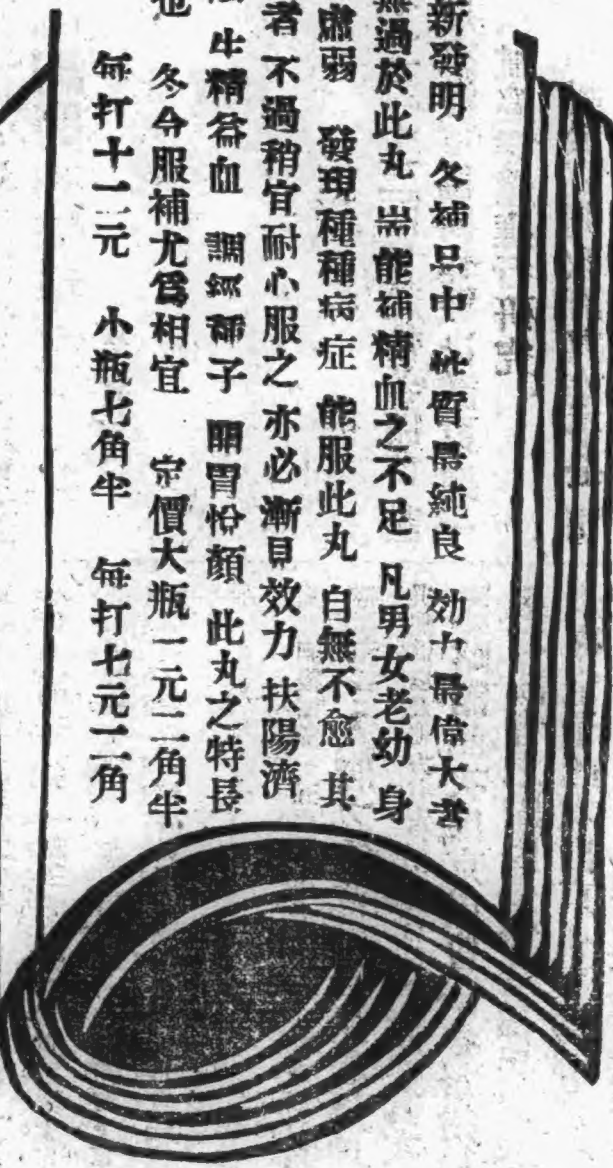 新發明 冬補品中 性質最純良 効力最偉大者
無過於此丸 耑能補精血之不足 凡男女老幼 身
虛弱 發現種種病症 能服此丸 自無不愈 其
者 不過稍宜耐心服之 亦必漸見效力 扶陽濟
生精益血 調經種子 開胃怡顏 此丸之特長
也 冬令服補尤爲相宜 定價大瓶一元二角半
每打十二元 小瓶七角半 每打七元二角